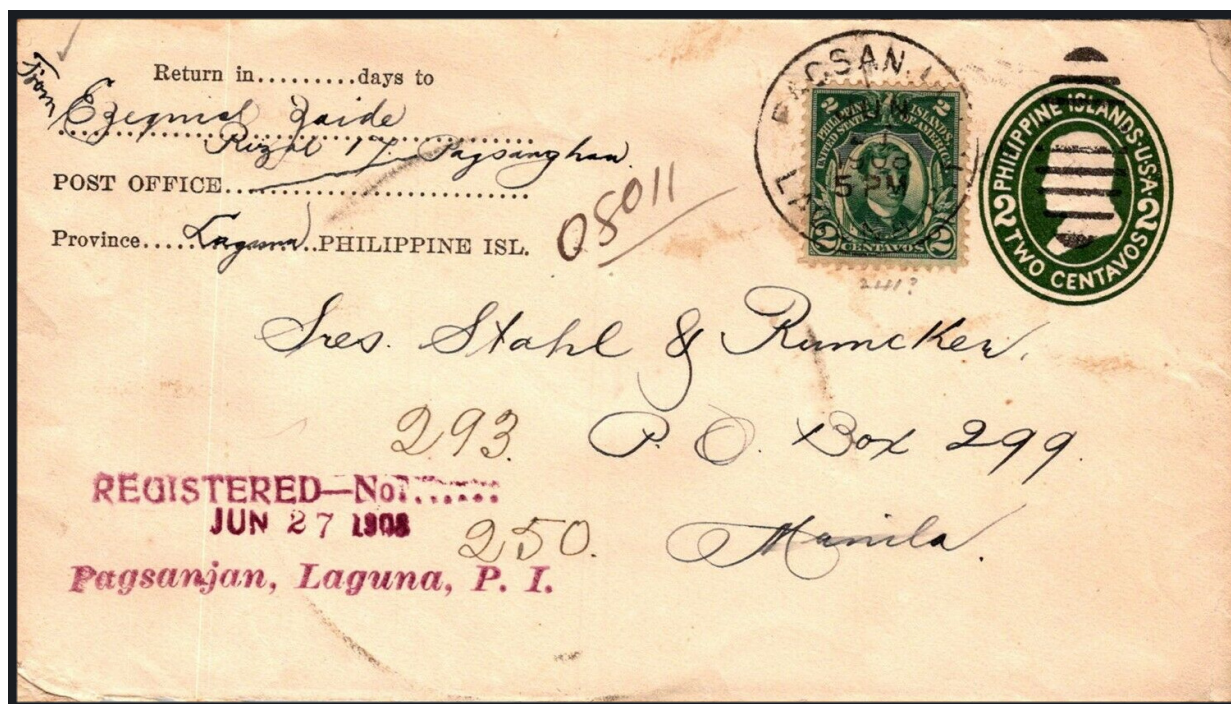 From
Return in.........days to
Ezequiel Zaide
Rizal 17 Pagsanghan
POST OFFICE
Province.....Laguna..PHILIPPINE ISL.
08011
PAGSAN
JUN
1908
5 PM
LAGUNA
2 2
PHILIPPINE ISLANDS
UNITED STATES OF AMERICA
2 CENTAVOS 2
PHILIPPINE ISLANDS·U·S·A·
2 2
TWO CENTAVOS
Sres. Stahl & Rumcker.
293. P. O. Box 299.
REGISTERED—No.
JUN 27 1908
250. Manila.
Pagsanjan, Laguna, P. I.